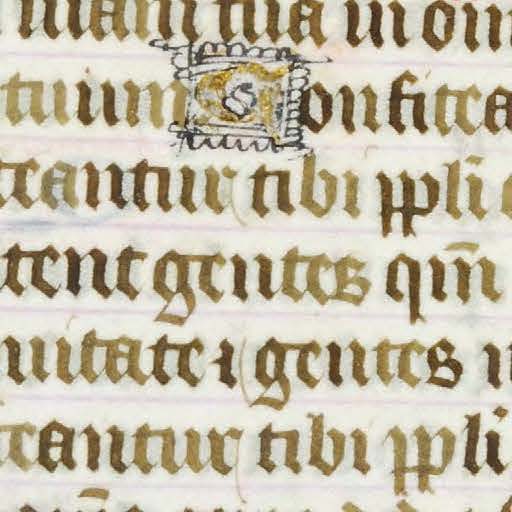 tuam in om
tuum Confitea
eantur tibi ppli
tent gentes qm̄
uitate ⁊ gentes
eantur tibi ppli